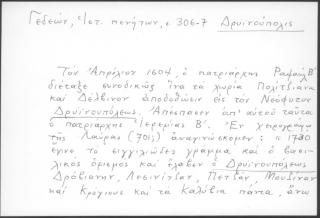 Γεδεών, Ἱστ. πενήτων, σ. 306-7 Δρυϊνούπολις
Τὸν Ἀπρίλιον 1604, ὁ πατριάρχης Ραφαὴλ Β΄
διέταξε συνοδικῶς ἵνα τὰ χωρία Πολίτσιανα
καὶ Δέλβινον ἀποδοθῶσιν εἰς τὸν Νεόφυτον
Δρυϊνουπόλεως. Ἀπέσπασεν ἀπ' αὐτοῦ ταῦτα
ὁ πατριάρχης Ἱερεμίας Β΄. Ἐν χειρογράφῳ
τῆς Λαύρας (701) ἀναγινώσκομεν: « 1730
ἔγινε τὸ σιγγιλιῶδες γράμμα καὶ ὁ βασι-
λικὸς ὁρισμὸς καὶ ἔλαβεν ὁ Δρυϊνουπόλεως
Δρόβιανην, Λεσινίτσαν, Πέτσαν, Μουζίναν
καὶ Κρογιους καὶ τὰ Καλύβια πάντα, ἄνω